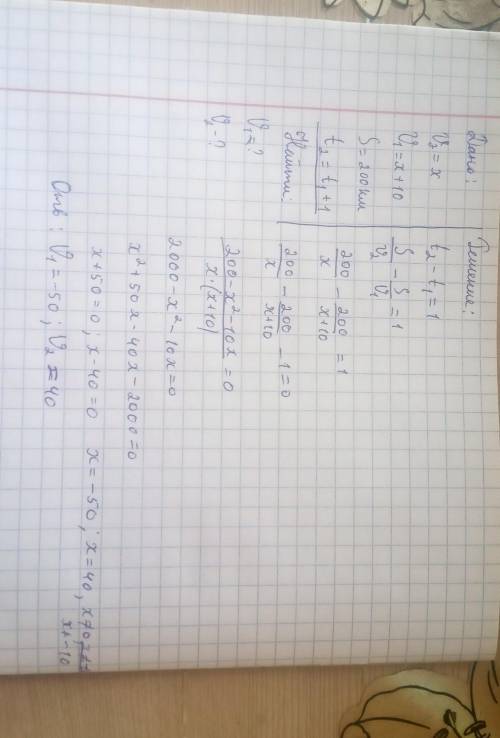 Дано:
V₂ = x
V₁ = x + 10
S = 200 км
t₂ = t₁ + 1
Найти:
V₁ = ?
V₂ - ?
Решение:
t₂ - t₁ = 1
S/V₂ - S/V₁ = 1
200/x - 200/x+10 = 1
200/x - 200/x+10 - 1 = 0
200 - x² - 10x/x·(x+10) = 0
2000 - x² - 10x = 0
x² + 50x - 40x - 2000 = 0
x + 50 = 0; x - 40 = 0 x = -50; x = 40, x ≠ 0,
x ≠ -10
Отв: V₁ = -50; V₂ = 40